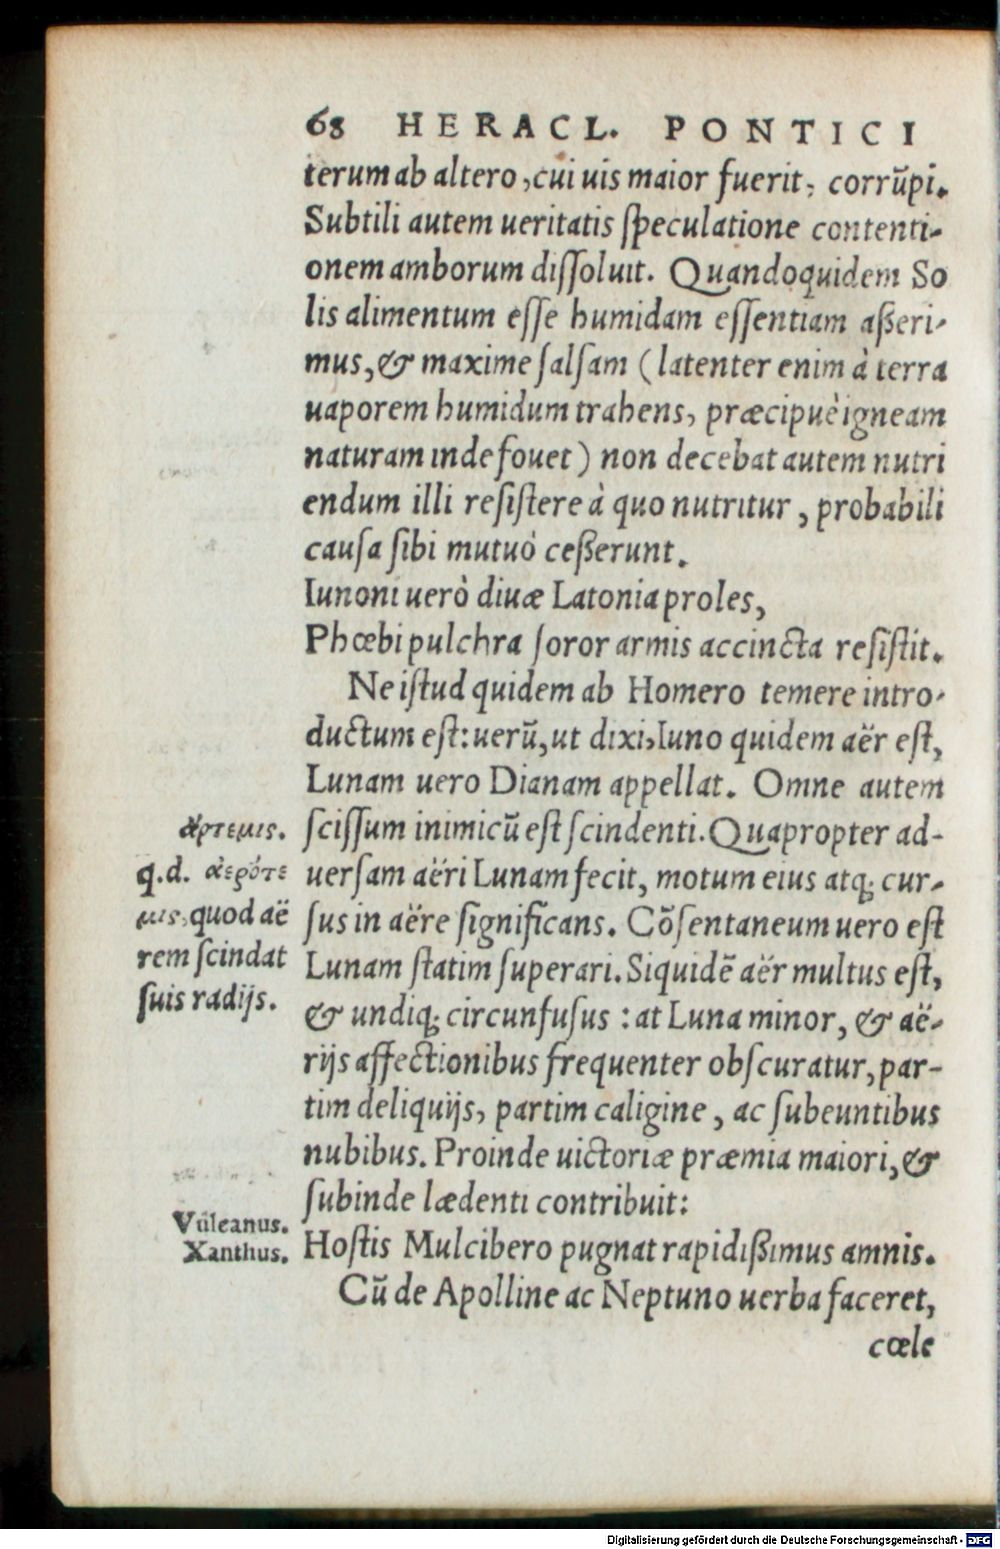 68 HERACL. PONTICI
terum ab altero, cui uis maior fuerit, corrũpi.
Subtili autem ueritatis ſpeculatione contenti-
onem amborum diſſoluit. Quandoquidem So
lis alimentum eſſe humidam eſſentiam aßeri-
mus, & maxime ſalſam (latenter enim à terra
uaporem humidum trahens, præcipuè igneam
naturam inde fouet) non decebat autem nutri
endum illi reſiſtere à quo nutritur, probabili
cauſa ſibi mutuò ceßerunt.
Iunoni uerò diuæ Latonia proles,
Phœbi pulchra ſoror armis accincta reſiſtit.
Ne iſtud quidem ab Homero temere intro-
ductum eſt: uerũ, ut dixi, Iuno quidem aër eſt,
Lunam uero Dianam appellat. Omne autem
ἄρτεμις.
ſciſſum inimicũ eſt ſcindenti. Quapropter ad-
q.d. ἀερότε
uerſam aëri Lunam fecit, motum eius atq; cur-
μις, quod aë
ſus in aëre ſignificans. Cõſentaneum uero eſt
rem ſcindat
Lunam ſtatim ſuperari. Siquidẽ aër multus eſt,
ſuis radijs.
& undiq; circunfuſus : at Luna minor, & aë-
rijs affectionibus frequenter obſcuratur, par-
tim deliquijs, partim caligine, ac ſubeuntibus
nubibus. Proinde uictoriæ præmia maiori, &
ſubinde lædenti contribuit:
Vulcanus.
Xanthus.
Hoſtis Mulcibero pugnat rapidißimus amnis.
Cũ de Apolline ac Neptuno uerba faceret,
cœle
Digitalisierung gefördert durch die Deutsche Forschungsgemeinschaft - DFG